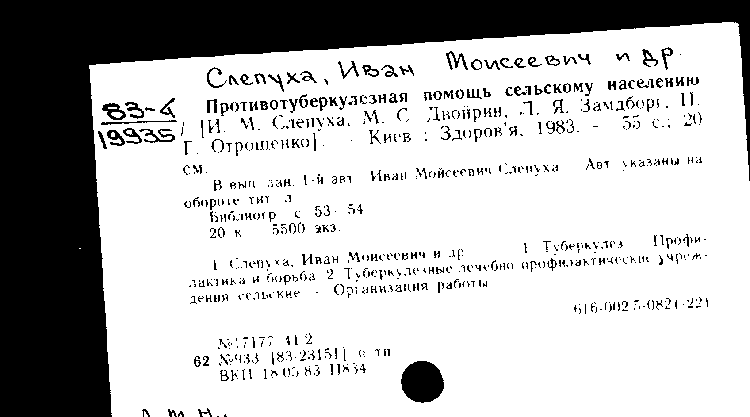 Слепуха, Иван Моисеевич и др.
83-4
19935
Противотуберкулезная помощь сельскому населению
/ [И. М. Слепуха, М. С. Двойрин, Л. Я. Замдборг, П.
Г. Отрошенко]. - Киев : Здоров'я, 1983. - 55 с.; 20
см.
В вып. дан. 1-й авт. Иван Мойсеевич Слепуха Авт. указаны на
обороте тит. л.
Библиогр. с. 53-54
20 к. 5500 экз.
1. Слепуха, Иван Моисеевич и др. 1. Туберкулез - Профи-
лактика и борьба 2. Туберкулезные лечебно-профилактические учреж-
дения сельские - Организация работы
616-002.5-082(-22)
№17177 41 2
62 №933 [83-23151] о тп
ВКП 18.05.83 П834